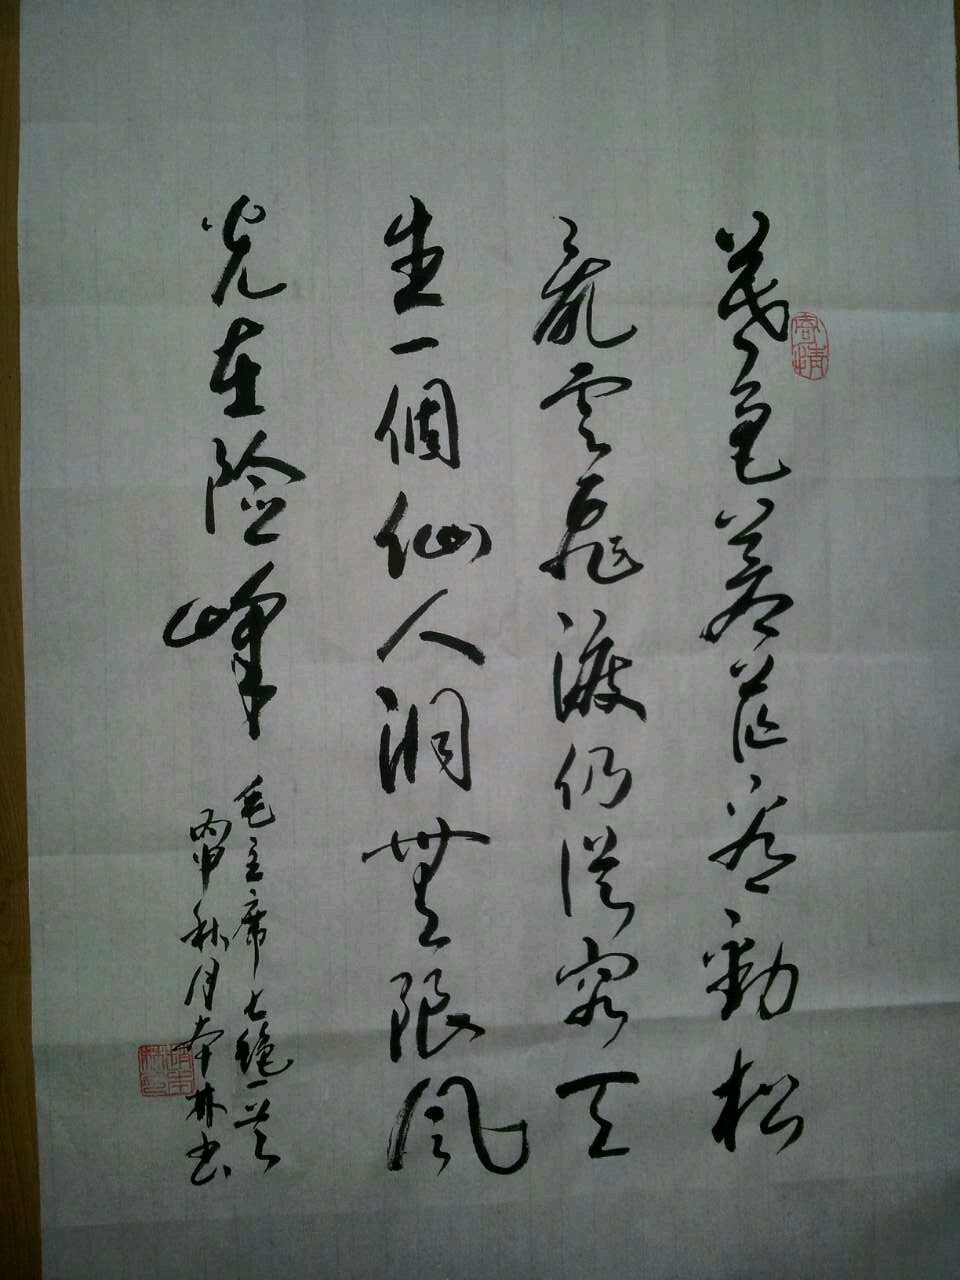 暮色蒼茫看勁松
亂云飛渡仍從容天
生一個仙人洞無限风
光在险峰
毛主席七绝一首
丙申秋月本林书